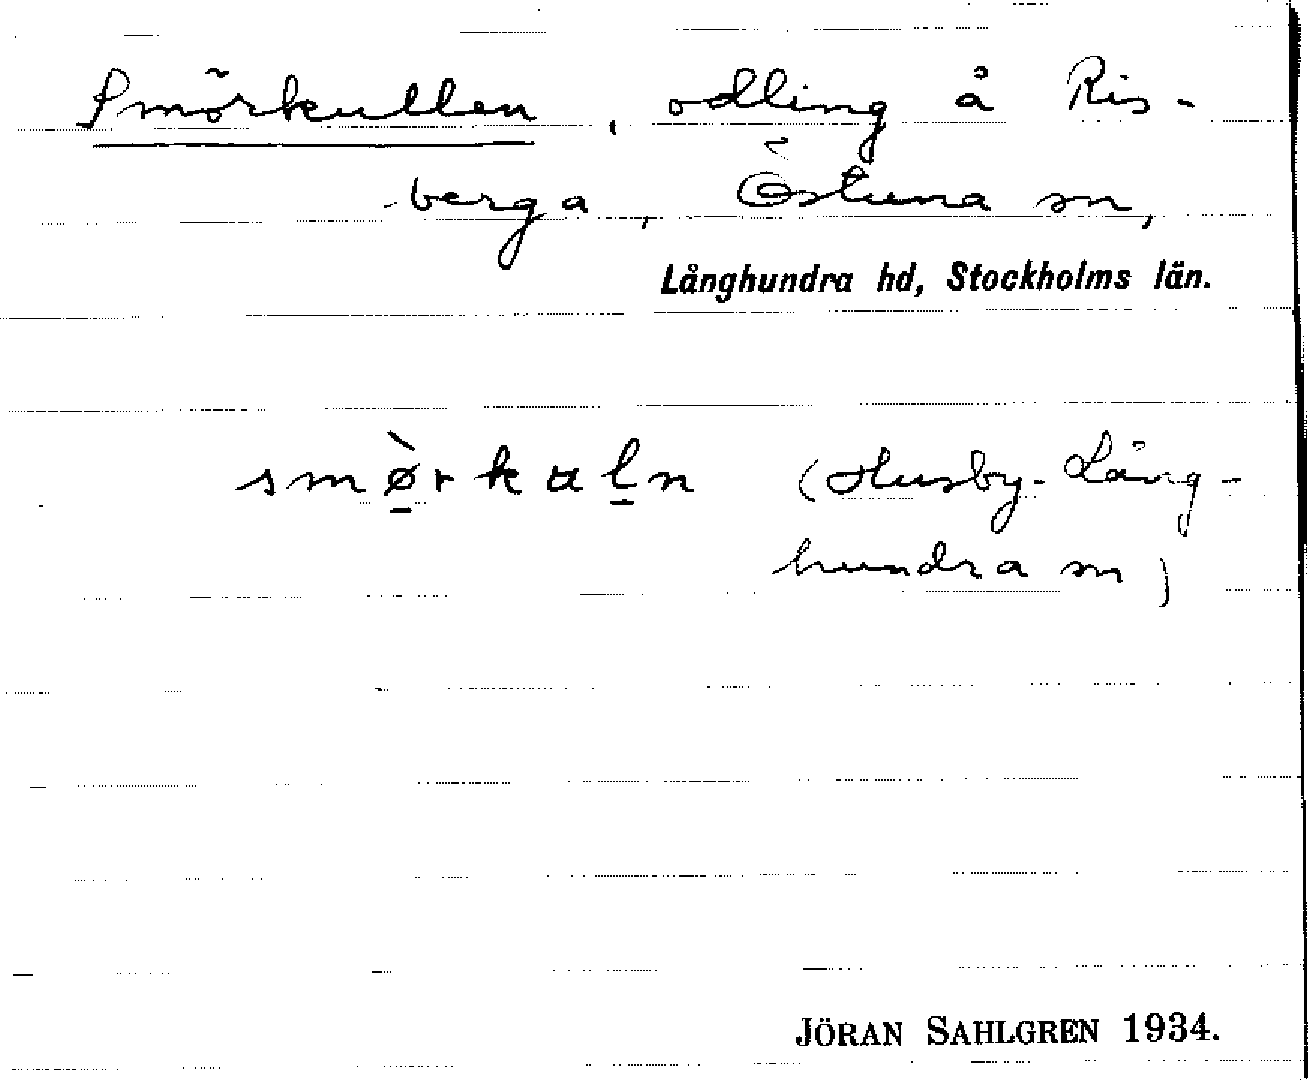 Smörkullen, odling å Ris-
berga, Östuna sn,
Långhundra hd, Stockholms län.
smø̠̀rkɷl̠n (Husby-Lång-
hundra sn)
JÖRAN SAHLGREN 1934.